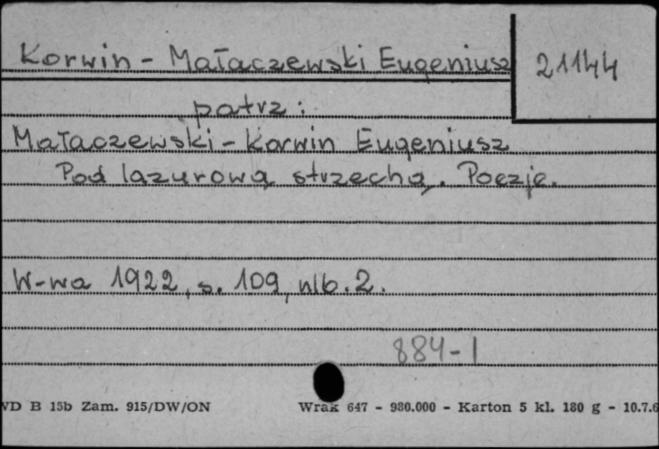 Korwin - Małaczewski Eugeniusz
21144
patrz:
Małaczewski - Korwin Eugeniusz
Pod lazurową strzechą. Poezje.
W-wa 1922, s. 109, nlb. 2.
884-1
WD B 15b Zam. 915/DW/ON
Wrak 647 - 980.000 - Karton 5 kl. 180 g - 10.7.6